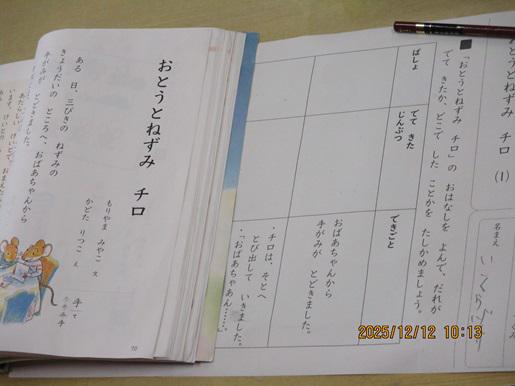 おとうとねずみ　チロ
もりやま　みやこ　文
かどた　りつこ　え
ある　日、三びきの　ねずみの
きょうだいの　ところへ、おばあちゃんから
手がみが　とどきました。
手て
70
おとうとねずみ　チロ　(1)
名まえ
■「おとうとねずみ　チロ」の　おはなしを　よんで、だれが
でて　きたか、どこで　した　ことかを　たしかめましょう。
ばしょ
でて　きた
じんぶつ
できごと
おばあちゃんから
手がみが　とどきました。
・チロは、そとへ
とび出して　いきました。
・「おばあちゃあん……。
2025/12/12 10:13